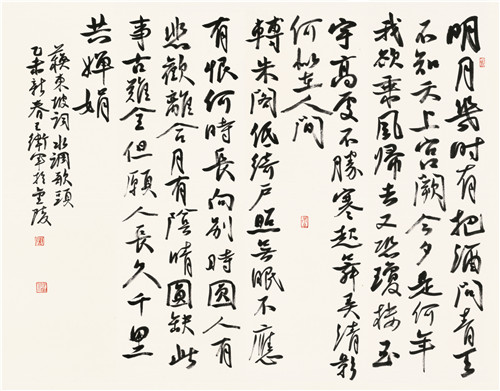 明月幾時有把酒問青天
不知天上宮闕今夕是何年
我欲乘風歸去又恐瓊樓玉
宇高處不勝寒起舞弄清影
何似在人間
轉朱閣低綺戶照無眠不應
有恨何時長向別時圓人有
悲歡離合月有陰晴圓缺此
事古難全但願人長久千里
共嬋娟
蘇東坡詞水調歌頭
乙未新春王衛軍於金陵